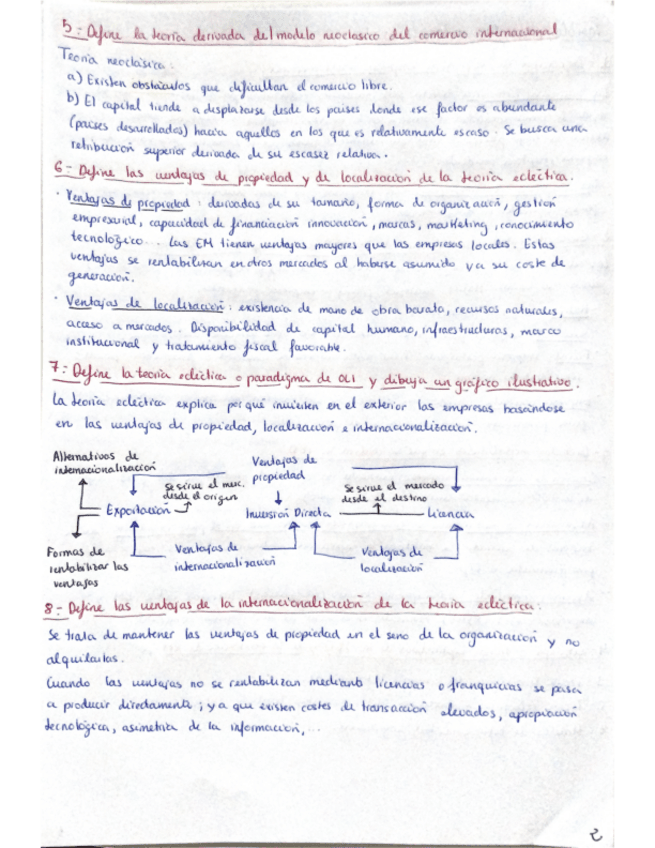 5:- Define la teoría derivada del modelo neoclásico del comercio internacional
Teoría neoclásica:
a) Existen obstáculos que dificultan el comercio libre.
b) El capital tiende a desplazarse desde los países donde ese factor es abundante
(países desarrollados) hacia aquellos en los que es relativamente escaso. Se busca una
retribución superior derivada de su escasez relativa.
6:- Define las ventajas de propiedad y de localización de la teoría ecléctica.
· Ventajas de propiedad: derivadas de su tamaño, forma de organización, gestión
empresarial, capacidad de financiación innovación, marcas, marketing, conocimiento
tecnológico... Las EM tienen ventajas mayores que las empresas locales. Estas
ventajas se rentabilizan en otros mercados al haberse asumido ya su coste de
generación.
· Ventajas de localización: existencia de mano de obra barata, recursos naturales,
acceso a mercados. Disponibilidad de capital humano, infraestructuras, marco
institucional y tratamiento fiscal favorable.
7:- Define la teoría ecléctica o paradigma de OLI y dibuja un gráfico ilustrativo.
La teoría ecléctica explica por qué invierten en el exterior las empresas basándose
en las ventajas de propiedad, localización e internacionalización.
Alternativas de
internacionalización
Ventajas de
propiedad
Se sirve el merc.
desde el origen
Se sirve el mercado
desde el destino
Exportación
Inversión Directa
Licencia
Formas de
rentabilizar las
ventajas
Ventajas de
internacionalización
Ventajas de
localización
8:- Define las ventajas de la internacionalización de la teoría ecléctica:
Se trata de mantener las ventajas de propiedad en el seno de la organización y no
alquilarlas.
Cuando las ventajas no se rentabilizan mediante licencias o franquicias se pasa
a producir directamente; ya que existen costes de transacción elevados, apropiación
tecnológica, asimetría de la información,...
2